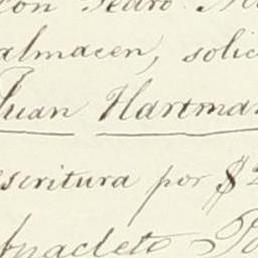 con Pedro
almacen, solic
Juan Hartman
escritura por $2
Anacleto